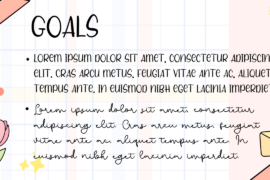 GOALS
• LOREM IPSUM DOLOR SIT AMET, CONSECTETUR ADIPISCING
ELIT. CRAS ARCU METUS, FEUGIAT VITAE ANTE AC, ALIQUET
TEMPUS ANTE. IN EUISMOD NIBH EGET LACINIA IMPERDIET
• Lorem ipsum dolor sit amet, consectetur
adipiscing elit. Cras arcu metus, feugiat
vitae ante ac, aliquet tempus ante. In
euismod nibh eget lacinia imperdiet.